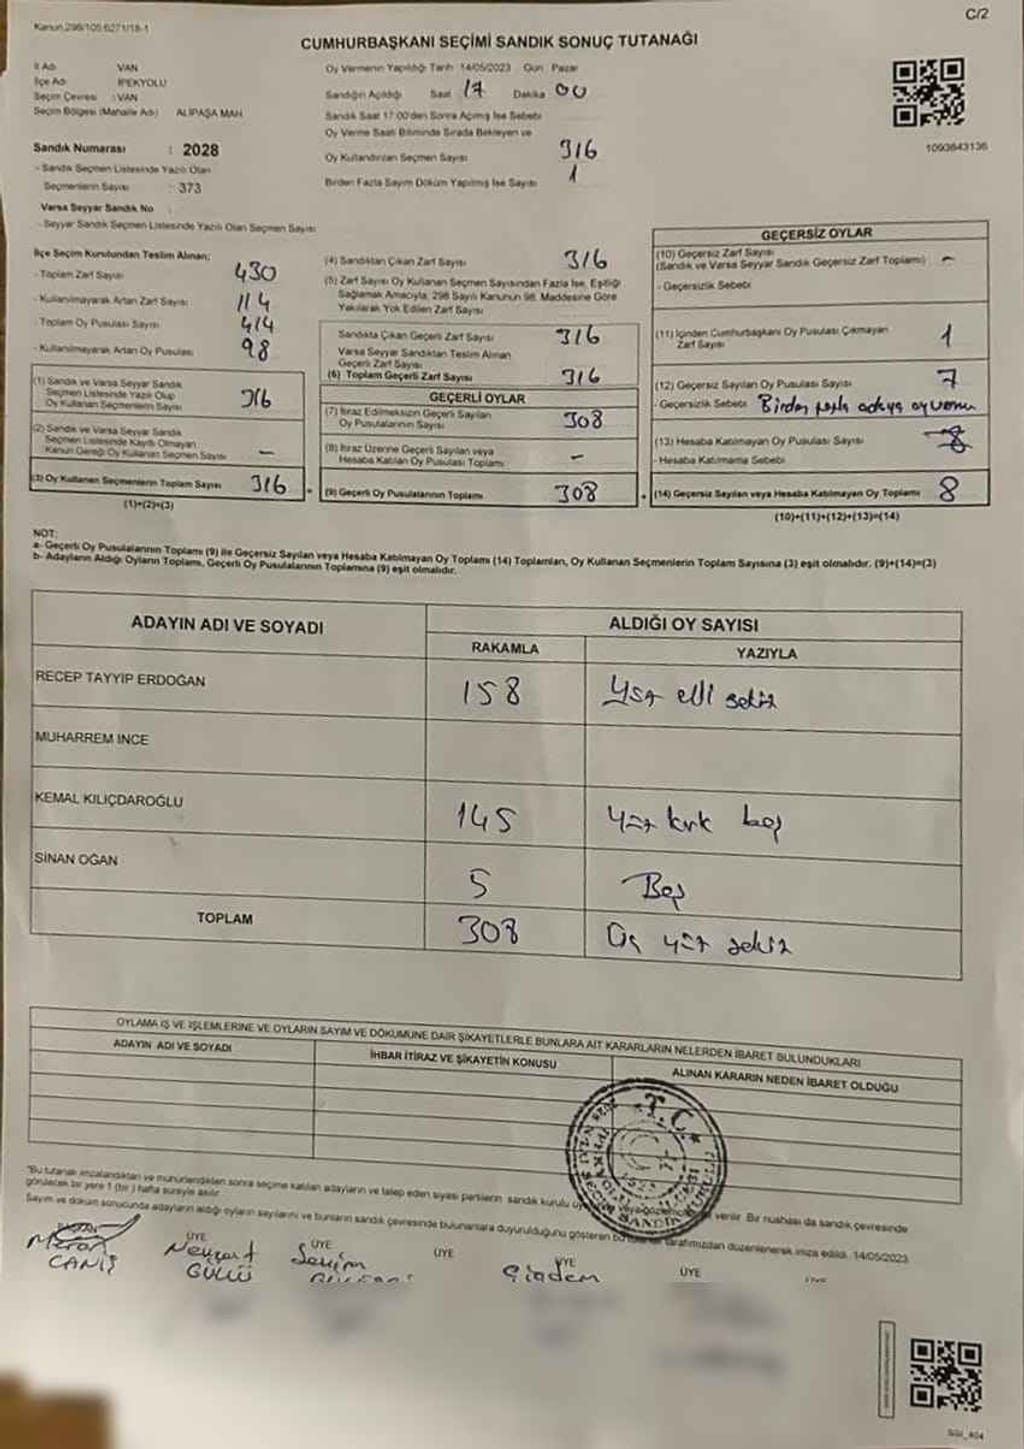 Kanun 298/105 6271/18-1
C/2
CUMHURBAŞKANI SEÇİMİ SANDIK SONUÇ TUTANAĞI
İl Adı VAN
İlçe Adı İPEKYOLU
Seçim Çevresi : VAN
Seçim Bölgesi (Mahalle Adı) ALİPAŞA MAH
Sandık Numarası : 2028
- Sandık Seçmen Listesinde Yazılı Olan
Seçmenlerin Sayısı : 373
Varsa Seyyar Sandık No :
- Seyyar Sandık Seçmen Listesinde Yazılı Olan Seçmen Sayısı
Oy Vermenin Yapıldığı Tarih 14/05/2023 Gün Pazar
Sandığın Açıldığı Saat 17 Dakika 00
Sandık Saat 17:00'den Sonra Açılmış İse Sebebi
Oy Verme Saati Bitiminde Sırada Bekleyen ve
Oy Kullandırılan Seçmen Sayısı 316
Birden Fazla Sayım Döküm Yapılmış İse Sayısı 1
1093643136
İlçe Seçim Kurulundan Teslim Alınan;
- Toplam Zarf Sayısı 430
- Kullanılmayarak Artan Zarf Sayısı 114
- Toplam Oy Pusulası Sayısı 414
- Kullanılmayarak Artan Oy Pusulası 98
(1) Sandık ve Varsa Seyyar Sandık
Seçmen Listesinde Yazılı Olup
Oy Kullanan Seçmenlerin Sayısı 316
(2) Sandık ve Varsa Seyyar Sandık
Seçmen Listesinde Kayıtlı Olmayan
Kanun Gereği Oy Kullanan Seçmen Sayısı –
(3) Oy Kullanan Seçmenlerin Toplam Sayısı 316
(1)+(2)=(3)
(4) Sandıktan Çıkan Zarf Sayısı 316
(5) Zarf Sayısı Oy Kullanan Seçmen Sayısından Fazla İse, Eşitliği
Sağlamak Amacıyla, 298 Sayılı Kanunun 98. Maddesine Göre
Yakılarak Yok Edilen Zarf Sayısı
Sandıkta Çıkan Geçerli Zarf Sayısı 316
Varsa Seyyar Sandıktan Teslim Alınan
Geçerli Zarf Sayısı
(6) Toplam Geçerli Zarf Sayısı 316
GEÇERLİ OYLAR
(7) İtiraz Edilmeksizin Geçerli Sayılan
Oy Pusulalarının Sayısı 308
(8) İtiraz Üzerine Geçerli Sayılan veya
Hesaba Katılan Oy Pusulası Toplamı –
(9) Geçerli Oy Pusulalarının Toplamı 308
GEÇERSİZ OYLAR
(10) Geçersiz Zarf Sayısı
(Sandık ve Varsa Seyyar Sandık Geçersiz Zarf Toplamı) –
- Geçersizlik Sebebi
(11) İçinden Cumhurbaşkanı Oy Pusulası Çıkmayan
Zarf Sayısı 1
(12) Geçersiz Sayılan Oy Pusulası Sayısı 7
- Geçersizlik Sebebi Birden fazla adaya oy verme
(13) Hesaba Katılmayan Oy Pusulası Sayısı
- Hesaba Katılmama Sebebi
(14) Geçersiz Sayılan veya Hesaba Katılmayan Oy Toplamı 8
(10)+(11)+(12)+(13)=(14)
NOT:
a- Geçerli Oy Pusulalarının Toplamı (9) ile Geçersiz Sayılan veya Hesaba Katılmayan Oy Toplamı (14) Toplamları, Oy Kullanan Seçmenlerin Toplam Sayısına (3) eşit olmalıdır. (9)+(14)=(3)
b- Adayların Aldığı Oyların Toplamı, Geçerli Oy Pusulalarının Toplamına (9) eşit olmalıdır.
ADAYIN ADI VE SOYADI
ALDIĞI OY SAYISI
RAKAMLA YAZIYLA
RECEP TAYYİP ERDOĞAN 158 Yüz elli sekiz
MUHARREM İNCE
KEMAL KILIÇDAROĞLU 145 Yüz kırk beş
SİNAN OĞAN 5 Beş
TOPLAM 308 Üç yüz sekiz
OYLAMA İŞ VE İŞLEMLERİNE VE OYLARIN SAYIM VE DÖKÜMÜNE DAİR ŞİKAYETLERLE BUNLARA AİT KARARLARIN NELERDEN İBARET BULUNDUKLARI
ADAYIN ADI VE SOYADI İHBAR İTİRAZ VE ŞİKAYETİN KONUSU ALINAN KARARIN NEDEN İBARET OLDUĞU
T.C.
"Bu tutanak imzalandıktan ve mühürlendikten sonra seçime katılan adayların ve talep eden siyasi partilerin sandık kurulu veya gözlemci verilir. Bir nushası da sandık çevresinde
görülecek bir yere 1 (bir) hafta süreyle asılır.
Sayım ve döküm sonucunda adayların aldığı oyların sayılarını ve bunların sandık çevresinde bulunanlara duyurulduğunu gösteren bu tarafımızdan düzenlenerek imza edildi. 14/05/2023
ÜYE ÜYE ÜYE ÜYE ÜYE
CANİŞ
GÜLLÜ
Çiğdem